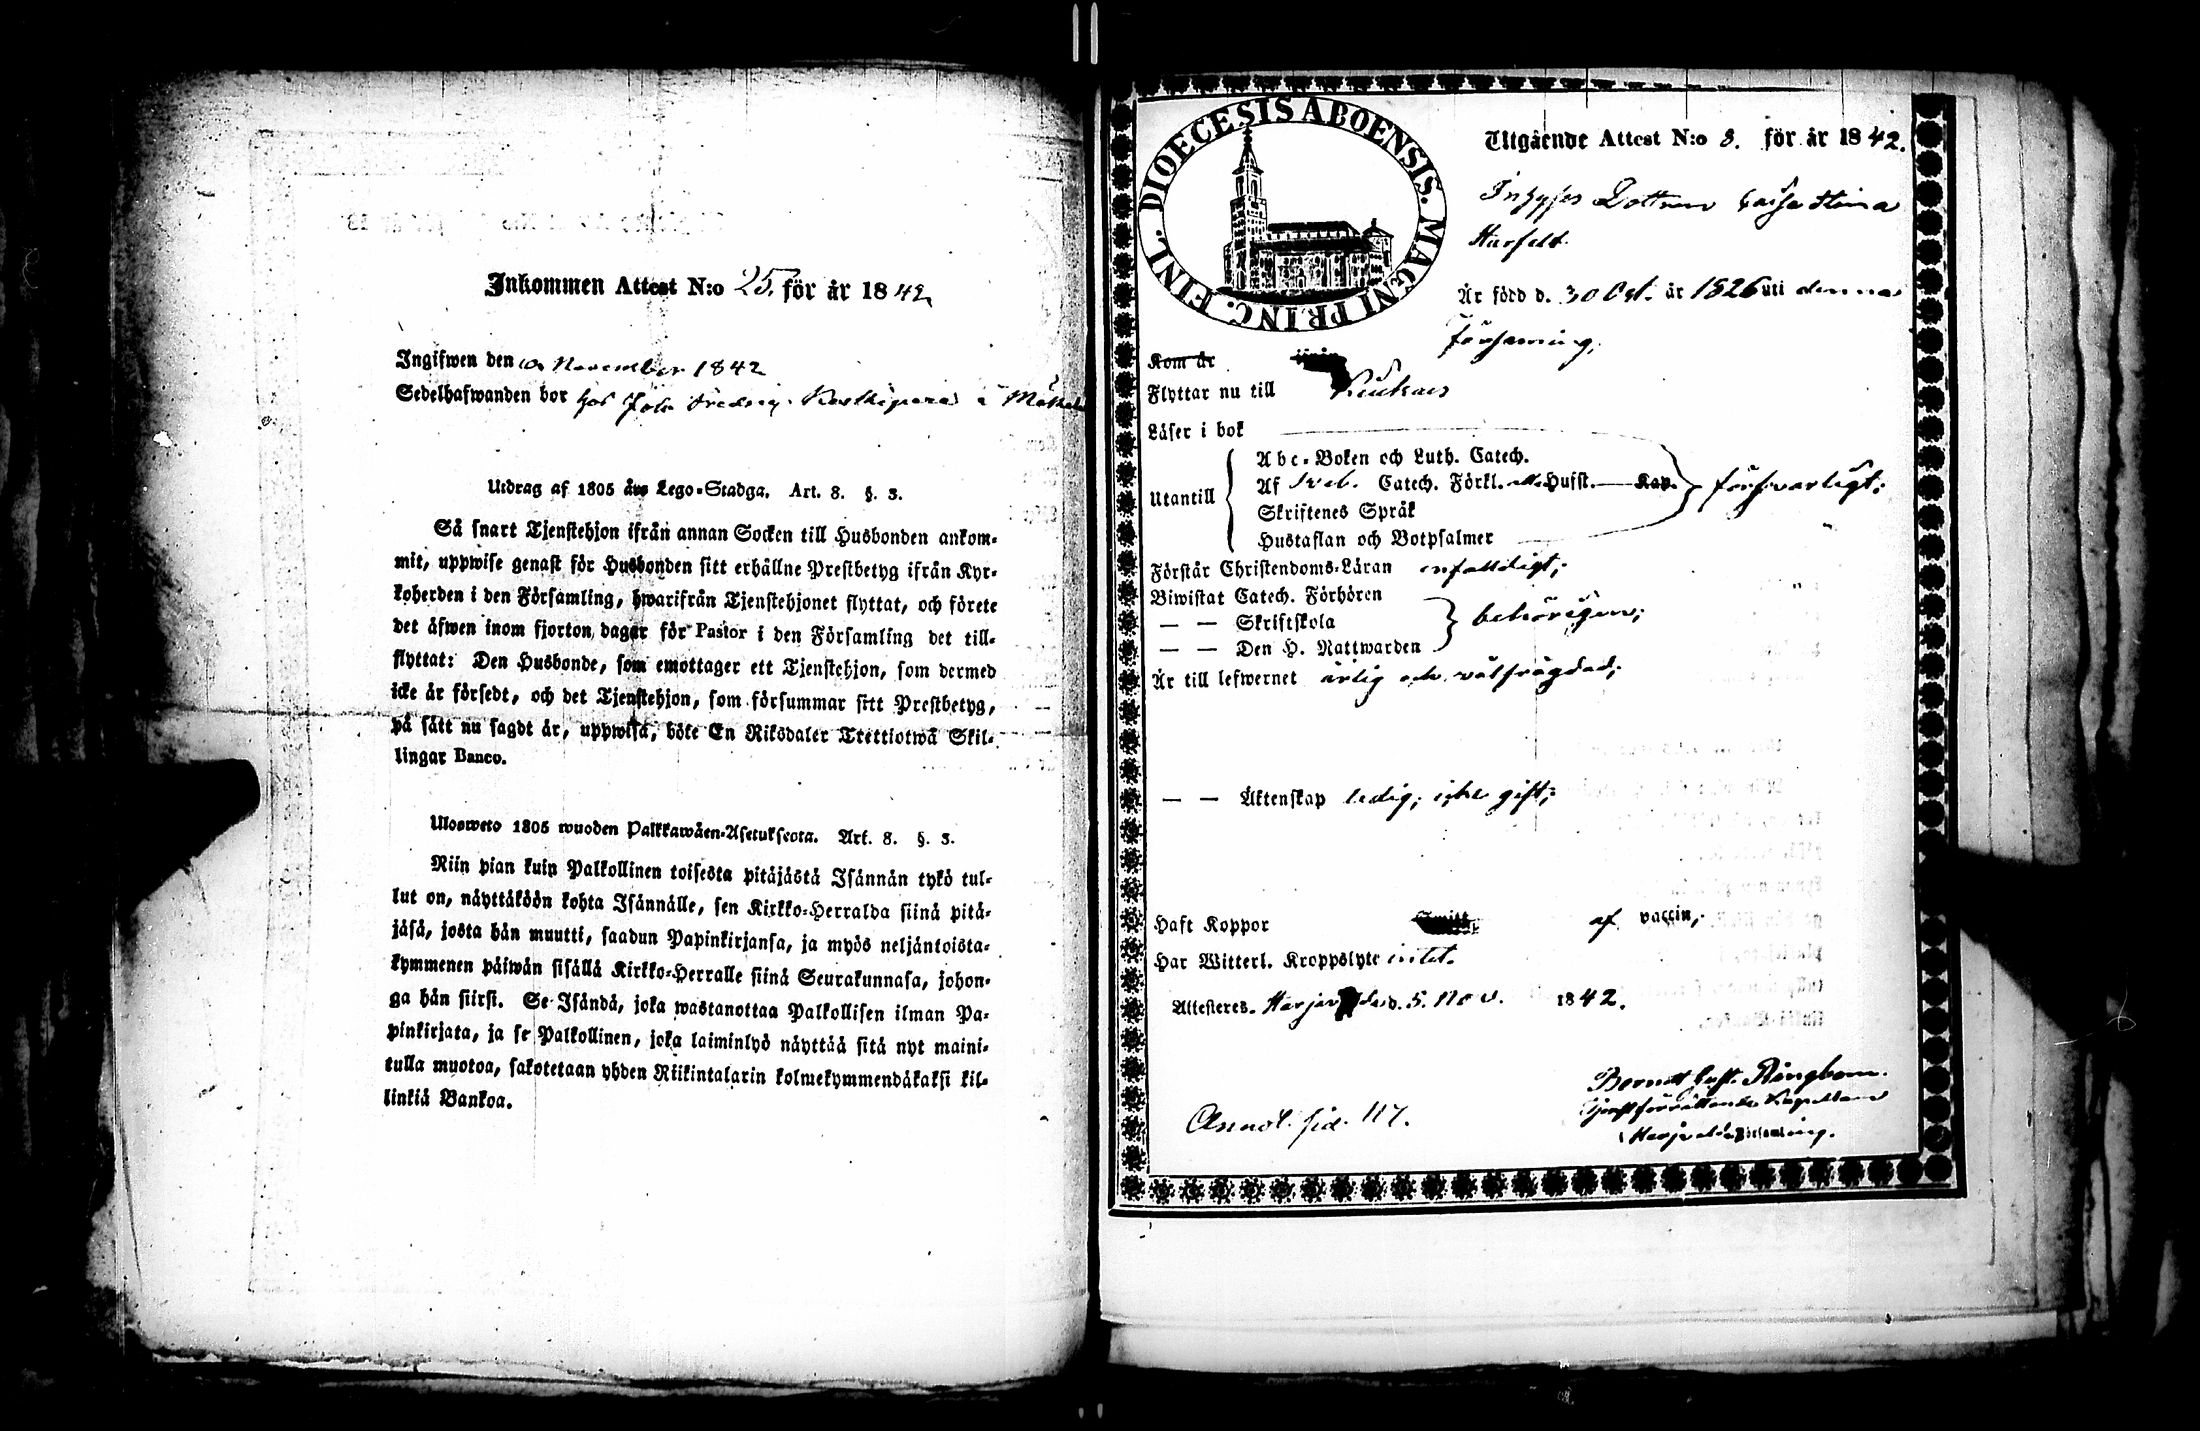 Inkommen Attest N:o 25. för år 1842
Ingifwen den November 1842
Sedelhafwanden bor hos Joh. Fredrig i
Utdrag af 1805 års Lego-Stadga. Art. 8. §. 3.
Så snart Tjenstehjon ifrån annan Socken till Husbonden ankom-
mit, uppwise genast för Husbonden sitt erhållne Prestbetyg ifrån Kyr-
koherden i den Församling, hwarifrån Tjenstehjonet flyttat, och förete
det äfwen inom fjorton dagar för Pastor i den Församling det till-
flyttat: Den Husbonde, som emottager ett Tjenstehjon, som dermed
icke är försedt, och det Tjenstehjon, som försummar sitt Prestbetyg,
på sätt nu sagdt är, uppwisa, böte En Riksdaler Trettiotwå Skil-
lingar Banco.
Ulosweto 1805 wuoden Palkkawäen-Asetuksesta. Art. 8. §. 3.
Niin pian kuin Palkollinen toisesta pitäjästä Isännän tykö tul-
lut on, näyttäköön kohta Isännälle, sen Kirkko-Herralda siinä pitä-
jäsä, josta hän muutti, saadun Papinkirjansa, ja myös neljäntoista-
kymmenen päiwän sisällä Kirkko-Herralle siinä Seurakunnasa, johon-
ga hän siirsi. Se Isändä, joka wastanottaa Palkollisen ilman Pa-
pinkirjata, ja se Palkollinen, joka laiminlyö näyttää sitä nyt maini-
tulla muotoa, sakotetaan yhden Riikintalarin kolmekymmendäkaksi kil-
linkiä Bankoa.
DIOECESIS ABOENSIS. MAGNI PRINC. FINL.
Utgående Attest N:o 8. för år 1842.
Dottren Cajsa Stina
Harfeldt.
Är född d. 30 Oct. år 1826 uti denna
församling;
Kom år
Flyttar nu till Kiukais
Läser i bok
Utantill
Abc-Boken och Luth. Catech.
Af Sveb. Catech. Förkl. Husst. Kap.
Skriftenes Språk
Hustaflan och Botpsalmer
försvarligt;
Förstår Christendoms-Läran enfaldigt;
Biwistat Catech. Förhören
— — Skriftskola
— — Den H. Nattwarden
behörigen;
Är till lefwernet ärlig och välfrägdad;
— — Äktenskap ledig, icke gift;
Haft Koppor af vaccin,
Har Witterl. Kroppslyte intet.
Attesteres. d. 5. Nov. 1842.
Berndt Gust. Ringbom.
Tjenstförrättande Kapellan
i Församling.
Annot. sid. 117.